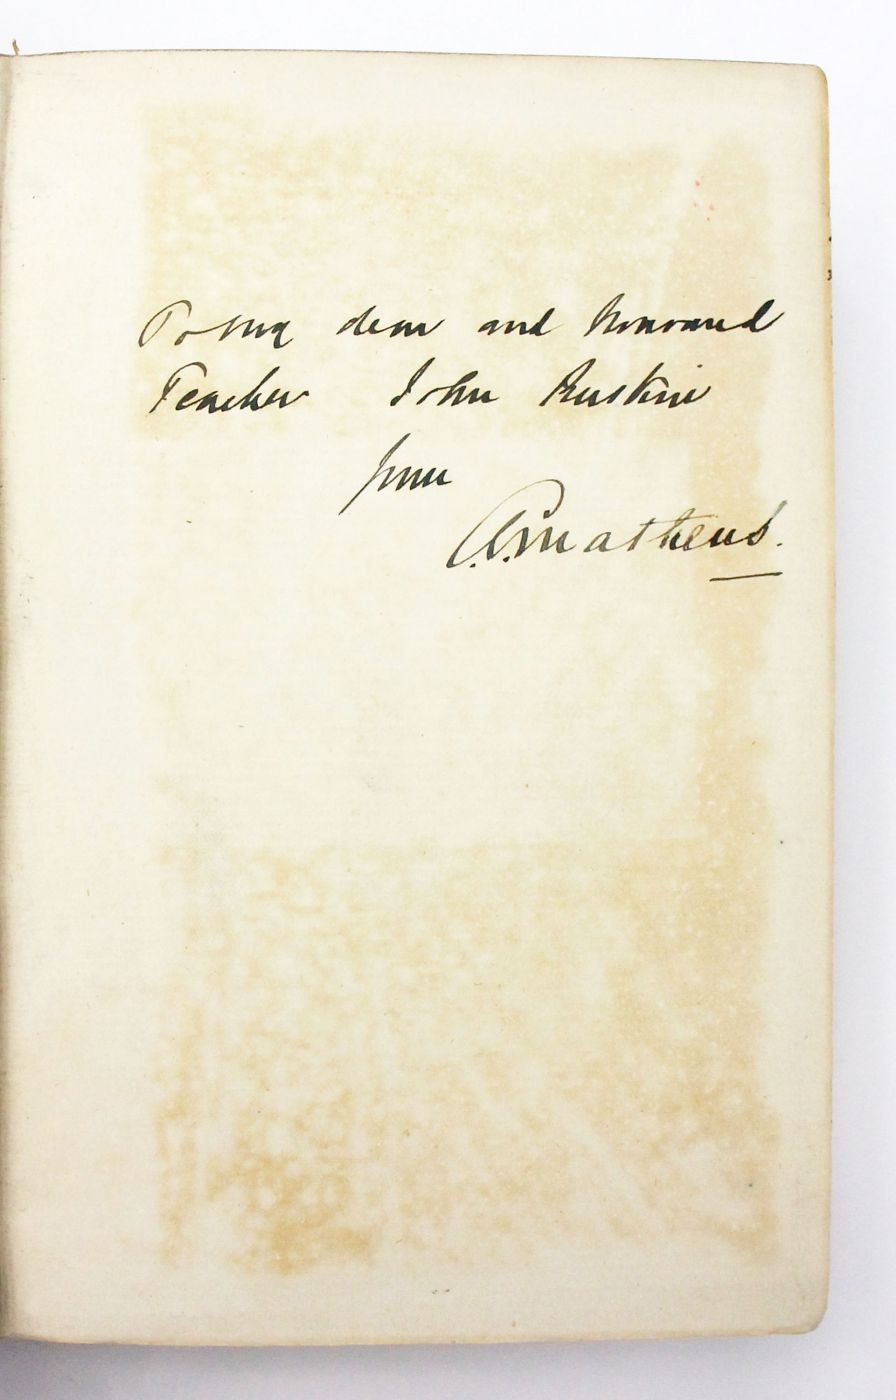 To my dear and honoured
Teacher John Ruskin
from
A. Mathews.